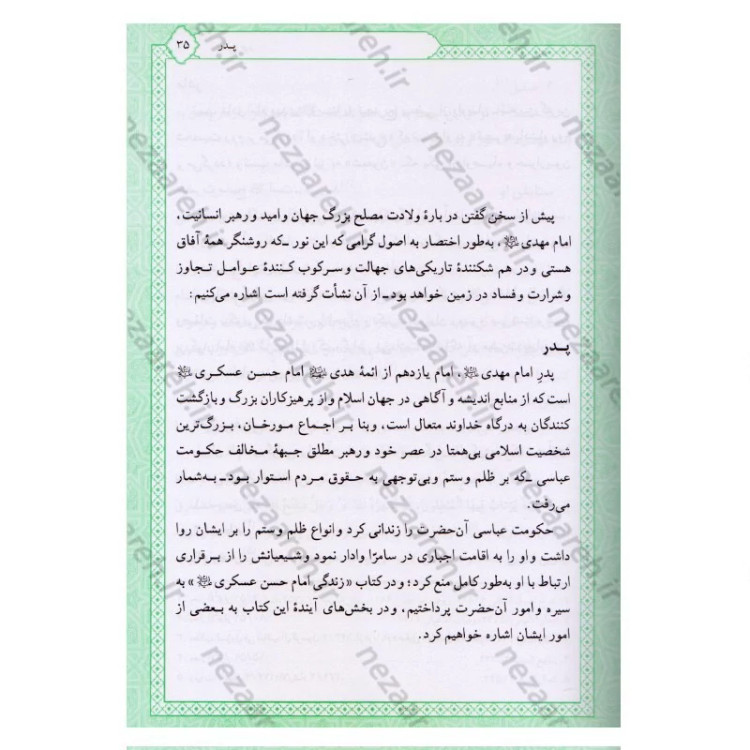 پدر
۳۵
پیش از سخن گفتن در بارهٔ ولادت مصلح بزرگ جهان و امید و رهبر انسانیت،
امام مهدی ﷷ، به‌طور اختصار به اصول گرامی که این نور ـ که روشنگر همهٔ آفاق
هستی و در هم شکنندهٔ تاریکی‌های جهالت و سرکوب کنندهٔ عوامل تجاوز
و شرارت و فساد در زمین خواهد بود ـ از آن نشأت گرفته است اشاره می‌کنیم:
پدر
پدرِ امام مهدی ﷷ، امام یازدهم از ائمهٔ هدی امام حسن عسکری ﷷ
است که از منابع اندیشه و آگاهی در جهان اسلام و از پرهیزکاران بزرگ و بازگشت
کنندگان به درگاه خداوند متعال است، و بنا بر اجماع مورخان، بزرگ‌ترین
شخصیت اسلامی بی‌همتا در عصر خود و رهبر مطلق جبههٔ مخالف حکومت
عباسی ـ که بر ظلم و ستم و بی‌توجهی به حقوق مردم استوار بود ـ به‌شمار
می‌رفت.
حکومت عباسی آن‌حضرت را زندانی کرد و انواع ظلم و ستم را بر ایشان روا
داشت و او را به اقامت اجباری در سامرّا وادار نمود و شیعیانش را از برقراری
ارتباط با او به‌طور کامل منع کرد؛ و در کتاب «زندگی امام حسن عسکری ﷷ» به
سیره و امور آن‌حضرت پرداختیم، و در بخش‌های آیندهٔ این کتاب به بعضی از
امور ایشان اشاره خواهیم کرد.
nezaareh.ir
nezaareh.ir
nezaareh.ir
nezaareh.ir
nezaareh.ir
nezaareh.ir